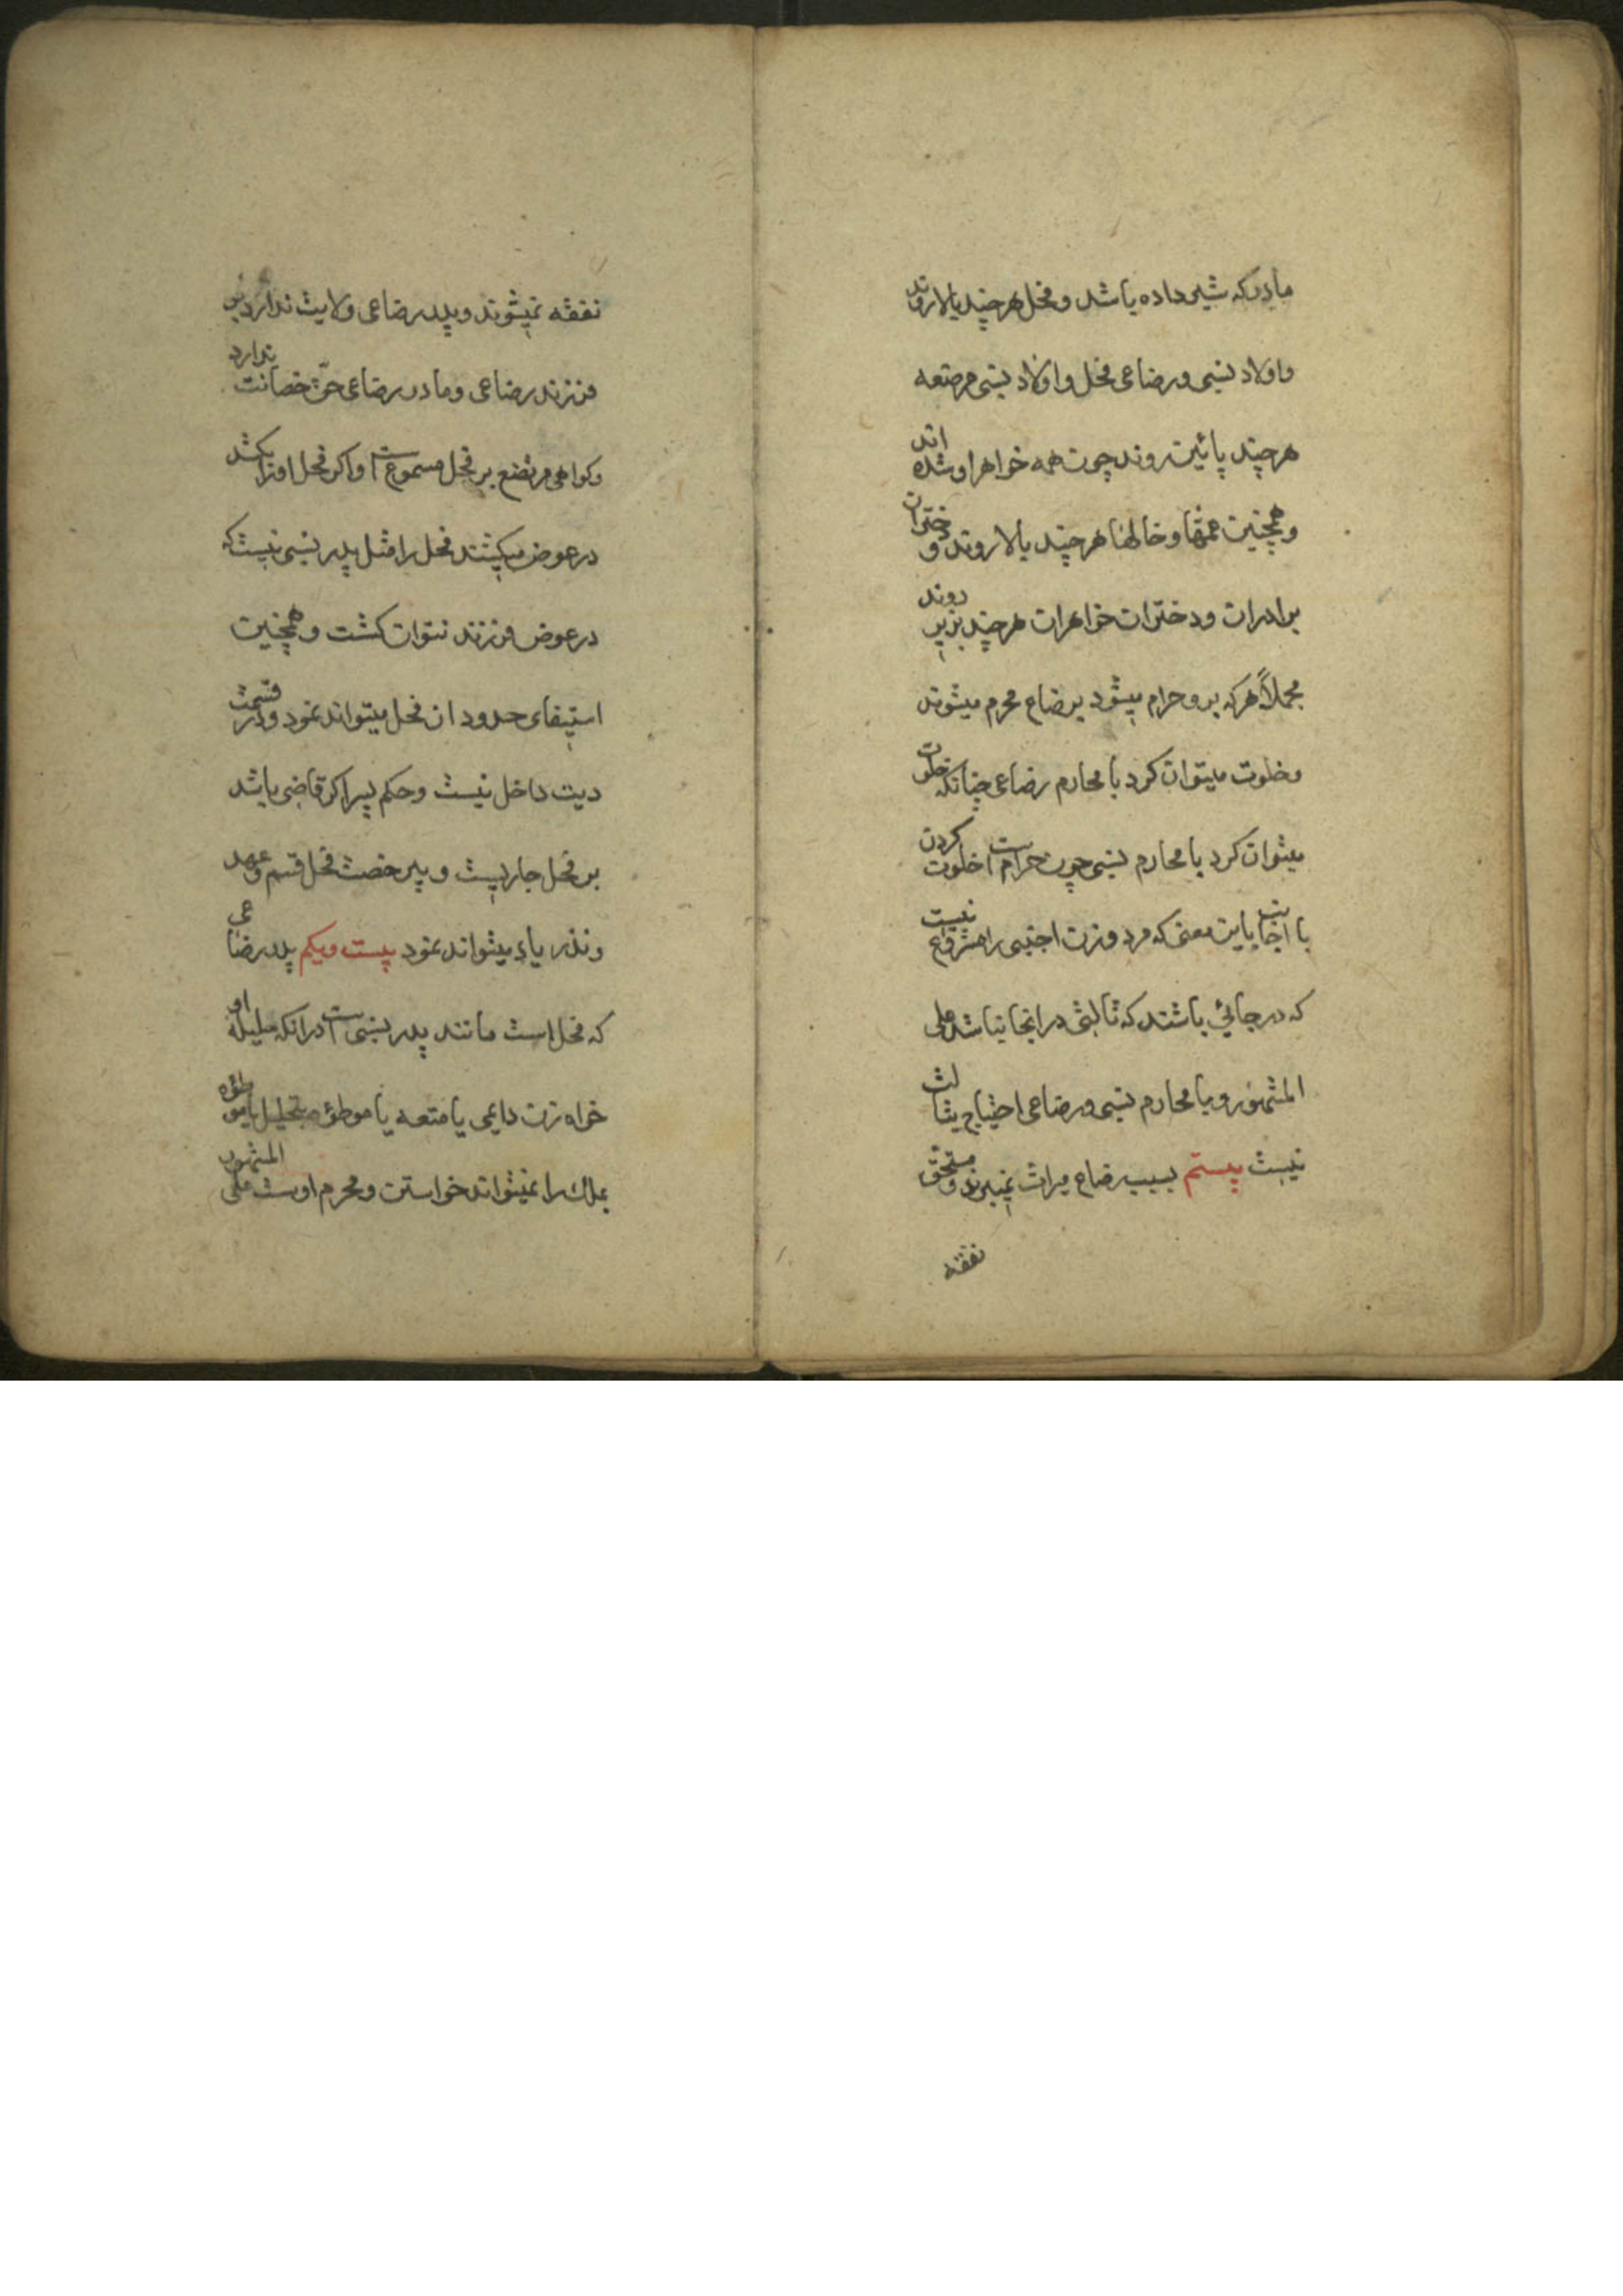 مادری که شیر داده باشد و فحل هر چند بالا روند
و اولاد نسبی و رضاعی فحل و اولاد نسبی مرضعه
هر چند پائین روند چون همه خواهر او شده اند
و همچنین عمّها و خالها هر چند بالا روند و دختران
برادران و دختران خواهران هر چند بزیر روند
مجملاً هر که برو حرام میشود برضاع محرم میشوند
و خلوت میتوان کرد با محارم رضاعی چنانکه خلوت
میتوان کرد با محارم نسبی چون حرام است خلوت کردن
با اجانب باین معنی که مرد و زن اجنبی را مشروع نیست
که در جائی باشند که ثالثی در انجا نباشد علی
المشهور و با محارم نسبی و رضاعی احتیاج بثالث
نیست بیستم بسبب رضاع میراث نمیبرند و مستحق
نفقه
نفقه نمیشوند و پدر رضاعی ولایت ندارد بر
فرزند رضاعی و مادر رضاعی حقّ حضانت ندارد
و کواهی مرتضع بر فحل مسموع است و اکر فحل او را بکشد
در عوض میکشند فحل را مثل پدر نسبی نیست که
در عوض فرزند نتوان کشت و همچنین
استیفای حدود از فحل میتواند نمود و در قسمت
دیت داخل نیست و حکم پسر اکر قاضی باشد
بر فحل جاریست و بی رخصت فحل قسم و عهد
و نذر یاد میتواند نمود بیست و یکم پدر رضاعی
که فحل است مانند پدر نسبی است در انکه حلیلهٔ او
خواه زن دایمی یا متعه یا موطؤه بتحلیل یا موطؤه
بملک را نمیتواند خواستن و محرم اوست علی المشهور